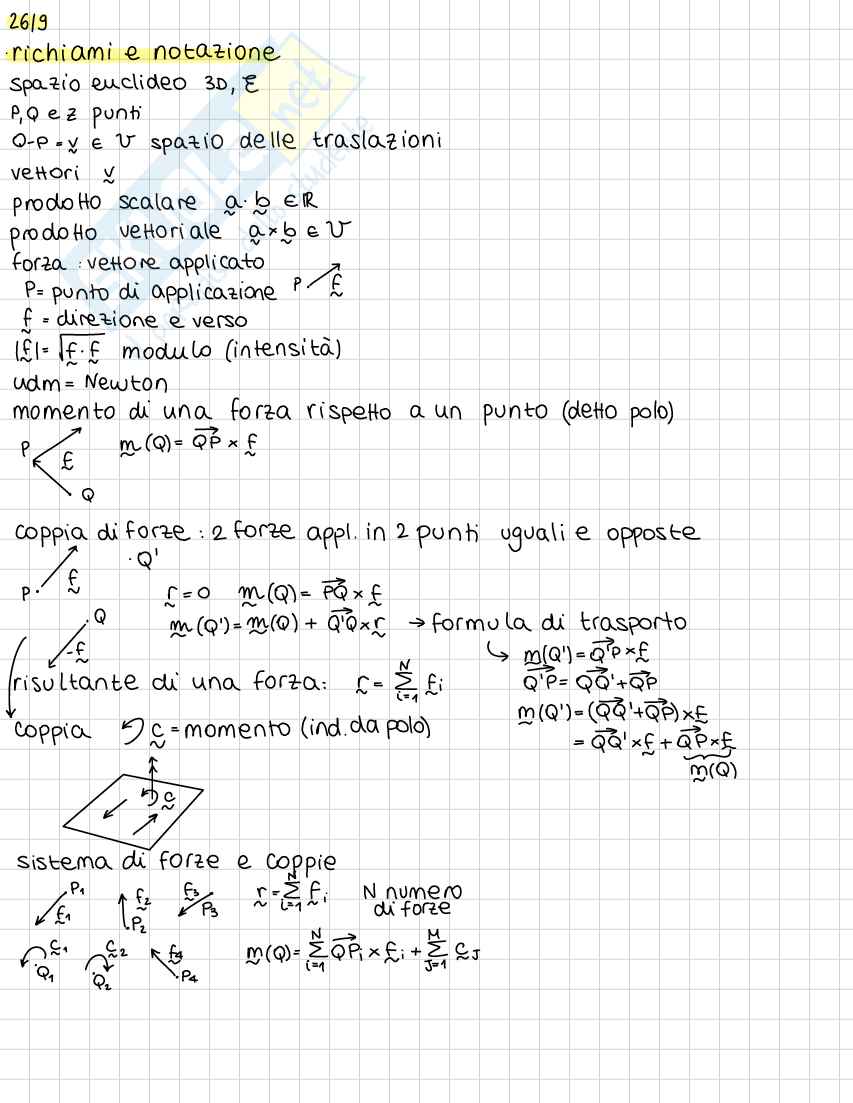 26/9
·richiami e notazione
spazio euclideo 3D, ℰ
P, Q e z punti
Q-P = v ∈ 𝒱 spazio delle traslazioni
vettori v
prodotto scalare a · b ∈ ℝ
prodotto vettoriale a × b ∈ 𝒱
forza : vettore applicato
P = punto di applicazione P f
f = direzione e verso
|f| = √f · f modulo (intensità)
udm = Newton
momento di una forza rispetto a un punto (detto polo)
P f Q m(Q) = QP × f
coppia di forze : 2 forze appl. in 2 punti uguali e opposte
· Q'
P · f
r = 0 m(Q) = PQ × f
Q -f
m(Q') = m(Q) + Q'Q × r → formula di trasporto
m(Q') = Q'P × f
Q'P = QQ' + QP
m(Q') = (QQ' + QP) × f
= QQ' × f + QP × f
m(Q)
risultante di una forza: r = Σ i=1 N fi
coppia c = momento (ind. da polo)
c
sistema di forze e coppie
P1 f1 f2 P2 f3 P3 r = Σ i=1 N fi N numero
di forze
c1 Q1 c2 Q2 f4 P4 m(Q) = Σ i=1 N QPi × fi + Σ J=1 M cJ
SKUOLA.net